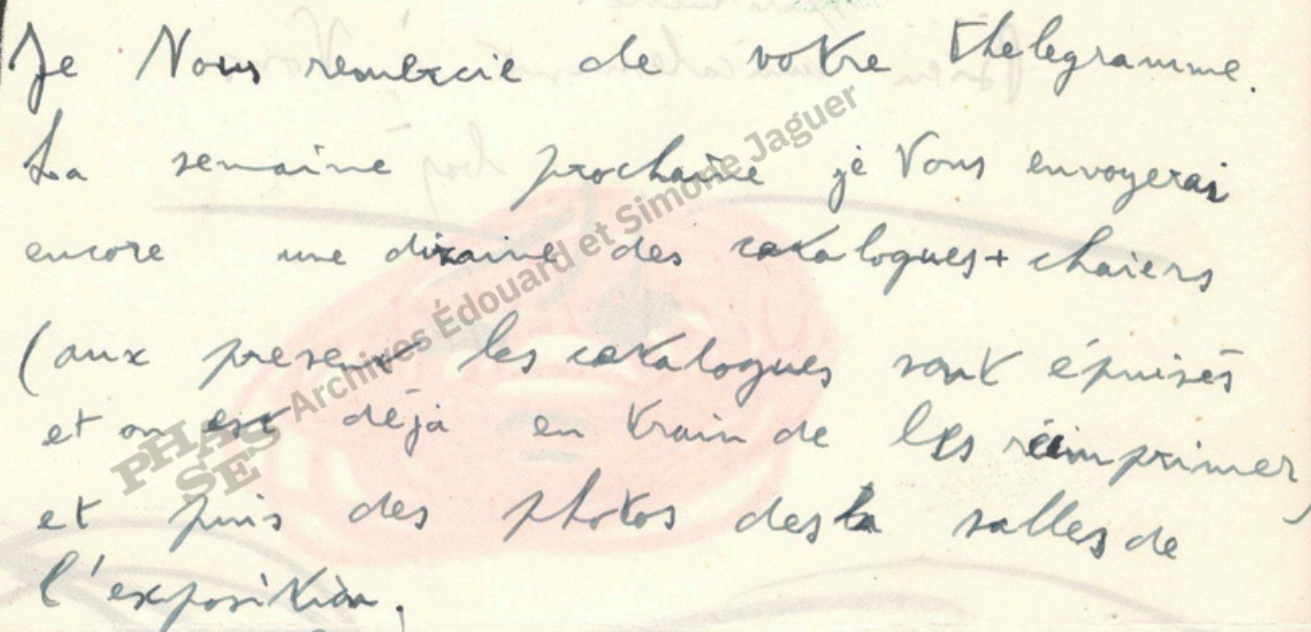 Je Vous remercie de votre thelegramme.
La semaine prochaine je Vous envoyerai
encore une dizaine des catalogues + chaiers
(aux present les catalogues sont épuisés
et on est déjà en train de les réimprimer)
et puis des photos des la salles de
l'exposition.
PHASES Archives Édouard et Simone Jaguer